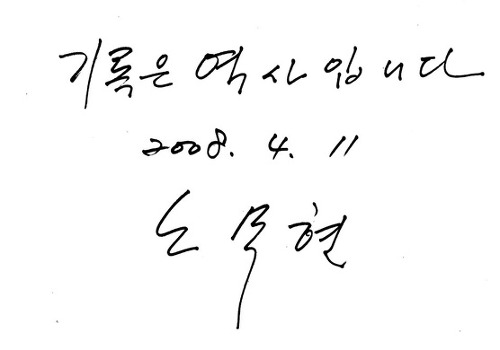 기록은 역사입니다
2008. 4. 11
노무현